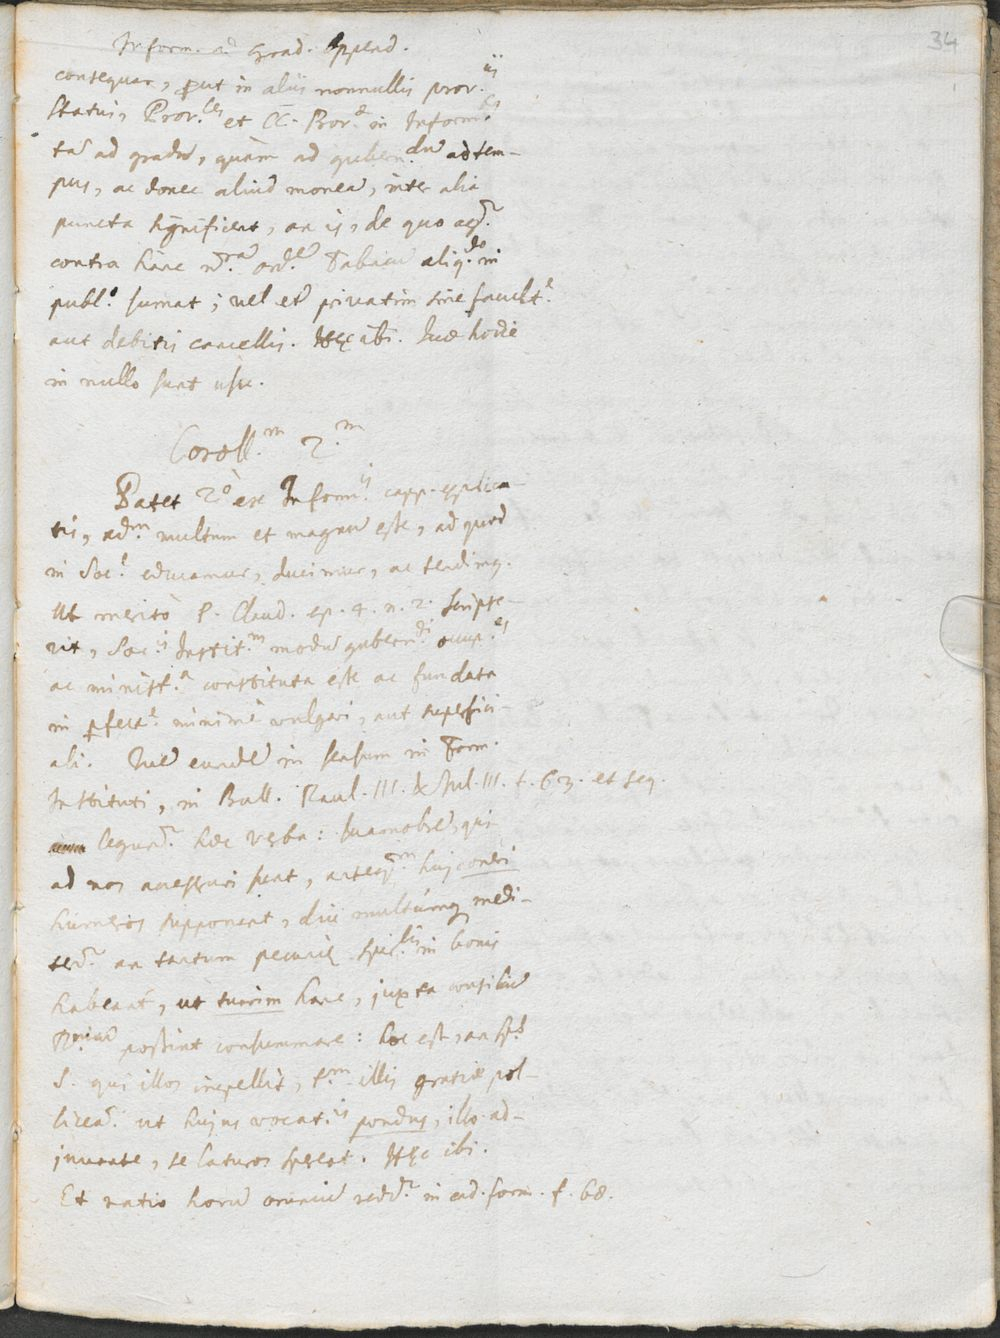 Inform. ad Grad. Append.
34
consequar, prout in aliis nonnullis prov.iis
statui, Prov.les et CC. Prov.æ in Inform.
ta' ad gradu', quàm ad gubern.du' ad tem-
pus, ac donec aliud monea', inter alia
puncta significent, an is, de quo
contra hanc n.ra' ord.e' Tabacu' aliq.do in
publ.o sumat; vel et' privatim sine facult.e
aut debitis cancellis. Hæc ibi. Quæ hodie
in nullo sunt usu.
Coroll.m 2.m
Patet 2.o ex Inform.is capp. explica-
tis, adm. multum et magnu' esse, ad quod
in Soc. educamur, ducimur, ac tendimq.
Ut meritò P. Claud. ep. 4. n. 2. scripse-
rit, Soc.is Instit.m modu' gubern.di occup.es
ac minist.a constituta esse ac fundata
in pfect.e minimè vulgari, aut superfici
ali. Quo eunde' in sensum in Form.
Instituti, in Bull. Paul. III. & Jul. III. f. 63. et seq.
legunt.r hæc verba: Quamobre', qui
ad nos accessuri sunt, anteq.m huic oneri
humeros supponant, diu multumq medi-
tent.r an tantum pecuniæ spir.lis in bonis
habeant, ut turrim hanc, juxta consiliu'
D.nicu' possint consummare: hoc est, an Sp.s
S. qui illos impellit, t.m illis gratiæ pol-
licea.r ut hujus vocat.is pondus, illo ad-
juvante, se laturos sperent. Hæc ibi.
Et ratio horu' omniu' redd.r in ead. form. f. 68.